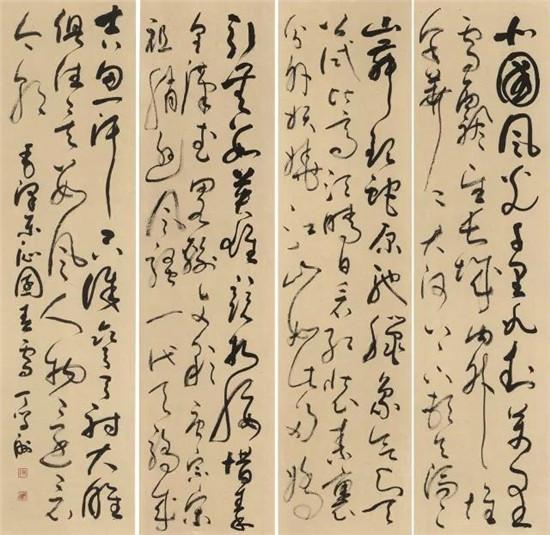 北國風光千里冰封萬里
雪飄望長城內外惟
餘莽莽大河上下頓失滔滔
山舞銀蛇原馳蠟象欲與天
公試比高須晴日看紅裝素裹
分外妖嬈江山如此多嬌
引無數英雄競折腰惜秦
皇漢武略輸文采唐宗宋
祖稍遜風騷一代天驕成
吉思汗只識彎弓射大雕
俱往矣數風人物還看
今朝 毛澤東沁園春雪